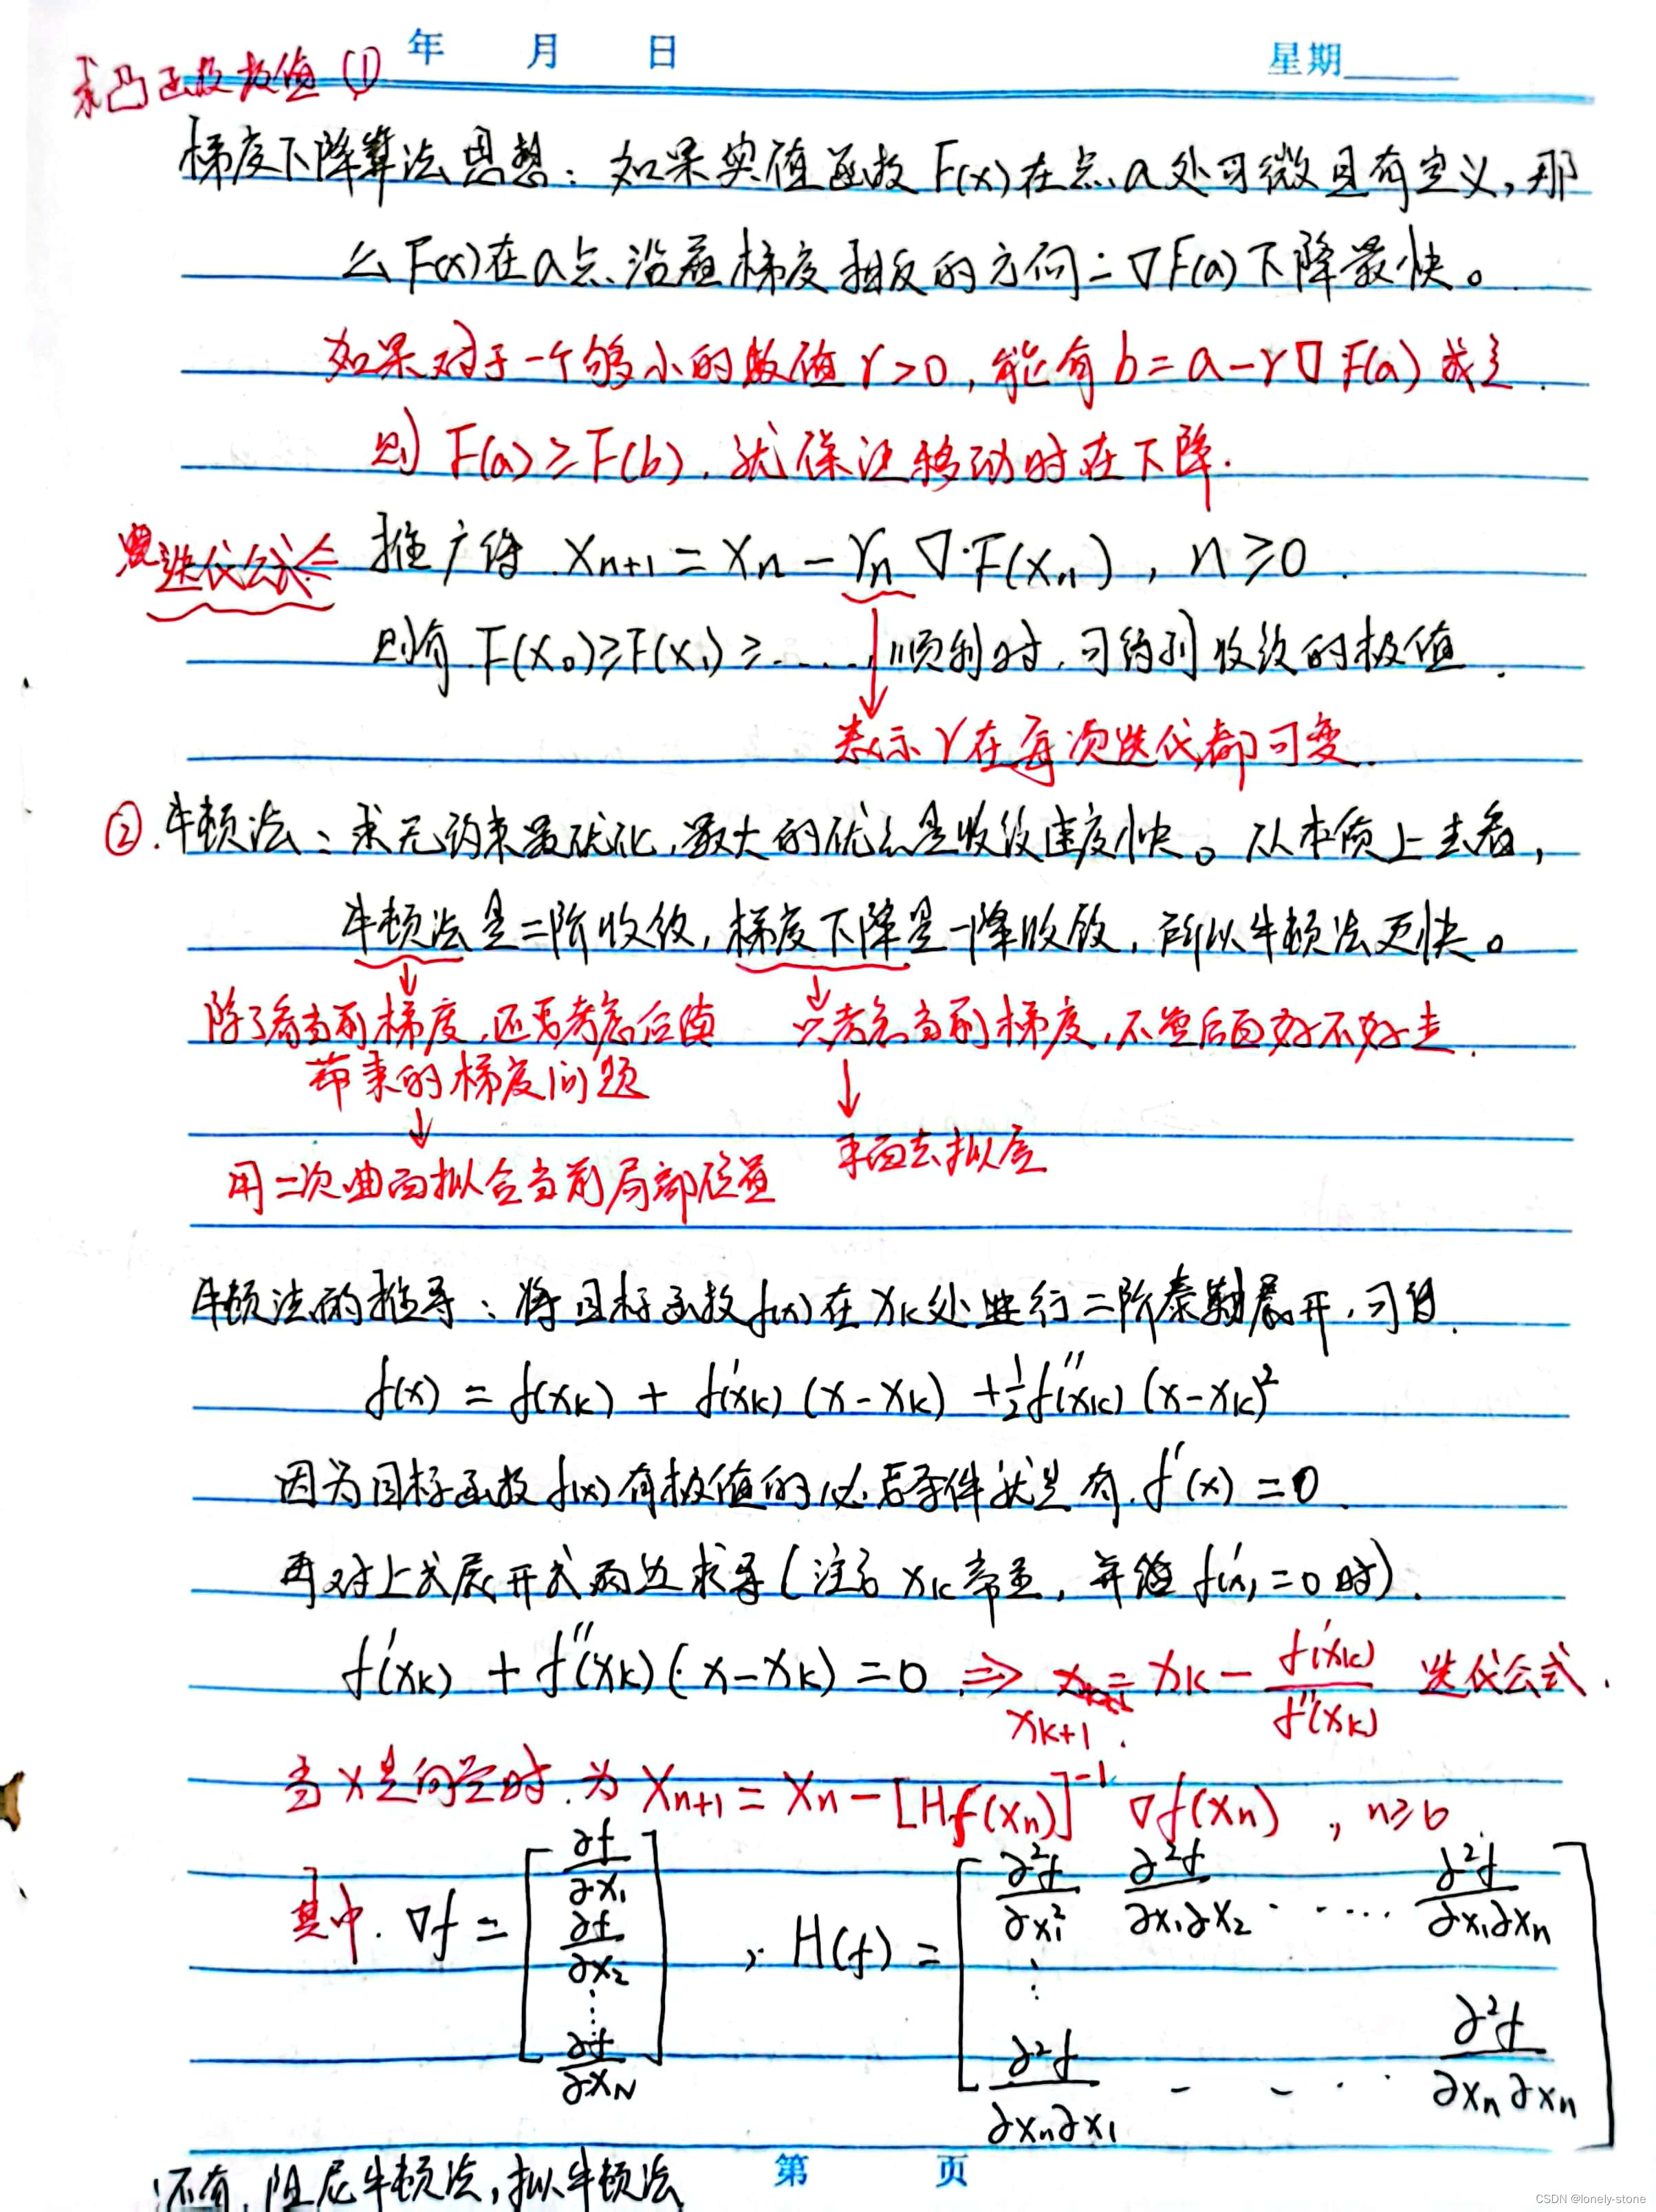 年 月 日 星期
求凸函数极值 ①
梯度下降算法思想：如果实值函数 F(x) 在点 a 处可微且有定义，那
么 F(x) 在 a 点沿着梯度相反的方向 -∇F(a) 下降最快。
如果对于一个够小的数值 γ>0，能有 b = a - γ∇F(a) 成立.
则 F(a) ≥ F(b)，就保证移动时在下降.
迭代公式 推广得 x_{n+1} = x_n - γ_n ∇F(x_n), n ≥ 0.
则有 F(x_0) ≥ F(x_1) ≥ ...... 顺利时，可得到收敛的极值.
表示 γ 在每次迭代都可变.
②. 牛顿法：求无约束最优化，最大的优点是收敛速度快。从本质上去看，
牛顿法是二阶收敛，梯度下降是一降收敛，所以牛顿法更快。
除了看当前梯度，还要考虑 只考虑当前梯度，不管后面好不好走.
带来的梯度问题
平面去拟合
用二次曲面拟合当前局部位置
牛顿法的推导：将目标函数 f(x) 在 x_k 处进行二阶泰勒展开，可得.
f(x) = f(x_k) + f'(x_k)(x-x_k) + ½f''(x_k)(x-x_k)²
因为目标函数 f(x) 有极值的必要条件就是有 f'(x) = 0.
再对上式展开式两边求导（注意 x_k 常量，并继 f'(x)=0 时）.
f'(x_k) + f''(x_k)(x-x_k) = 0 ⇒ x_{k+1} = x_k - f'(x_k)/f''(x_k) 迭代公式.
当 x 是向量时. 为 x_{n+1} = x_n - [Hf(x_n)]^{-1} ∇f(x_n), n≥0
其中. ∇f = [∂f/∂x_1 ∂f/∂x_2 ⋮ ∂f/∂x_N], H(f) = [∂²f/∂x_1² ∂²f/∂x_1∂x_2 ...... ∂²f/∂x_1∂x_n
⋮
∂²f/∂x_n∂x_1 - - ·· ∂²f/∂x_n∂x_n]
还有，阻尼牛顿法，拟牛顿法
第 页
CSDN @lonely-stone